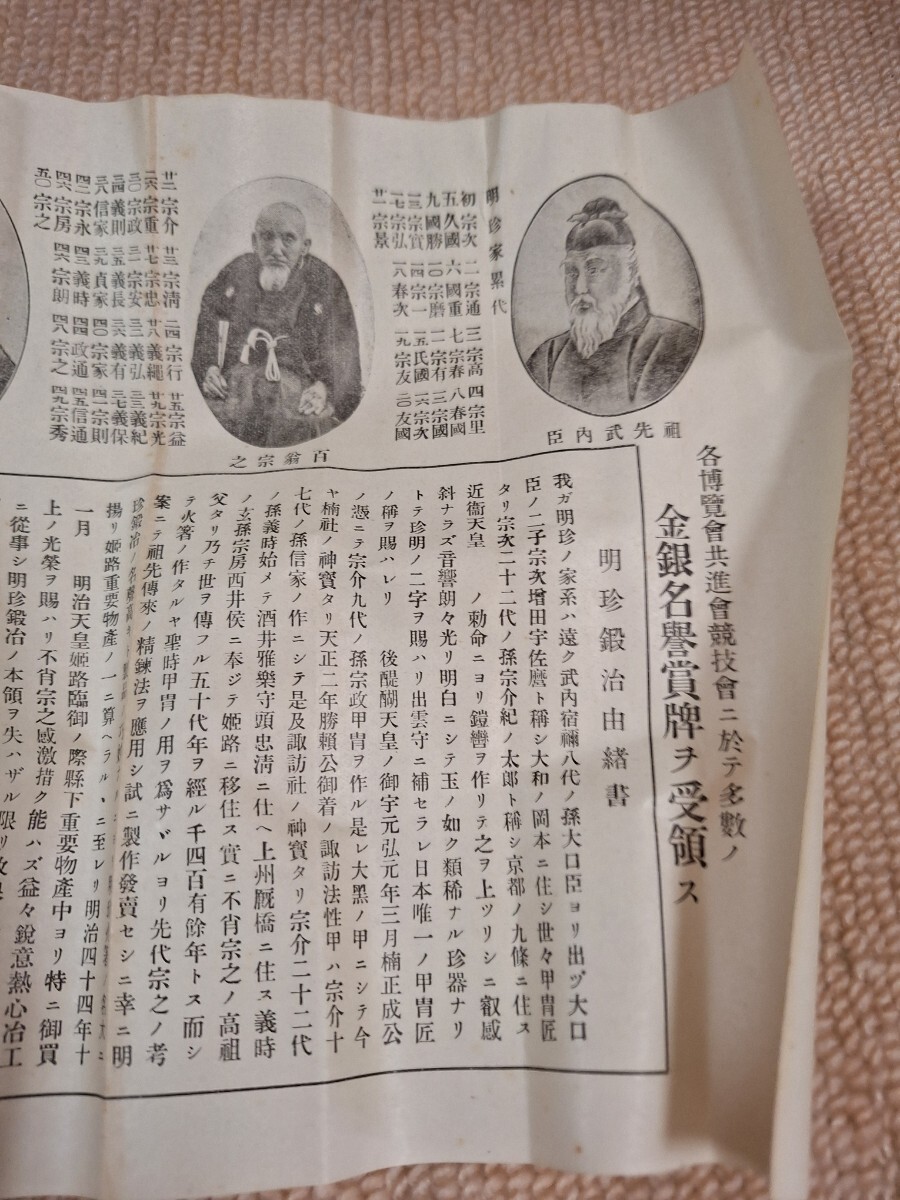 各博覽會共進會競技會ニ於テ多數ノ
金銀名譽賞牌ヲ受領ス
祖先武内臣
明珍家累代
初宗次 二宗通 三宗高 四宗里
五久國 六國重 七宗春 八春國
九國勝 一〇宗磨 一一宗有 三宗國
一三宗實 一四宗一 一五氏國 一六宗次
一七宗弘 一八春次 一九宗友 二〇友國
廿一宗景
百翁宗之
廿二宗介 廿三宗淸 二四宗行 廿五宗益
二六宗重 廿七宗忠 廿八義繩 廿九宗光
三〇宗政 三一宗安 三二義弘 三〇義紀
三四義則 三五義長 三六義有 三七義保
三八信家 三九貞家 四〇宗家 四一宗則
四二宗永 四三義時 四四政通 四五信通
四六宗房 四六宗朗 四八宗之 四九宗秀
五〇宗之
明珍鍛冶由緒書
我ガ明珍ノ家系ハ遠ク武内宿禰八代ノ孫大口臣ヨリ出ヅ大口
臣ノ二子宗次增田宇佐麿ト稱シ大和ノ岡本ニ住シ世々甲冑匠
タリ宗次二十二代ノ孫宗介紀ノ太郎ト稱シ京都ノ九條ニ住ス
近衞天皇 ノ勅命ニヨリ鎧轡ヲ作リテ之ヲ上ツリシニ叡感
斜ナラズ音響朗々光リ明白ニシテ玉ノ如ク類稀ナル珍器ナリ
トテ珍明ノ二字ヲ賜ハリ出雲守ニ補セラレ日本唯一ノ甲冑匠
ノ稱ヲ賜ハレリ 後醍醐天皇ノ御宇元弘元年三月楠正成公
ノ憑ニテ宗介九代ノ孫宗政甲冑ヲ作ル是レ大黑ノ甲ニシテ今
ヤ楠社ノ神寶タリ天正二年勝賴公御着ノ諏訪法性甲ハ宗介十
七代ノ孫信家ノ作ニシテ是及諏訪社ノ神寶タリ宗介二十二代
ノ孫義時始メテ酒井雅樂守頭忠淸ニ仕ヘ上州厩橋ニ住ス義時
ノ玄孫宗房西井侯ニ奉ジテ姬路ニ移住ス實ニ不肖宗之ノ高祖
父タリ乃チ世ヲ傳フル五十代年ヲ經ル千四百有餘年トス而シ
テ火箸ノ作タルヤ聖時甲冑ノ用ヲ爲サヾルヨリ先代宗之ノ考
案ニテ祖先傳來ノ精鍊法ヲ應用シ試ニ製作發賣セシニ幸ニ明
珍鍛冶ノ名聲高
揚リ姬路重要物產ノ一ニ算ヘラルヽニ至レリ明治四十四年十
一月 明治天皇姬路臨御ノ際縣下重要物產中ヨリ特ニ御買
上ノ光榮ヲ賜ハリ不肖宗之感激措ク能ハズ益々銳意熱心冶工
ニ從事シ明珍鍛冶ノ本領ヲ失ハザル限リ